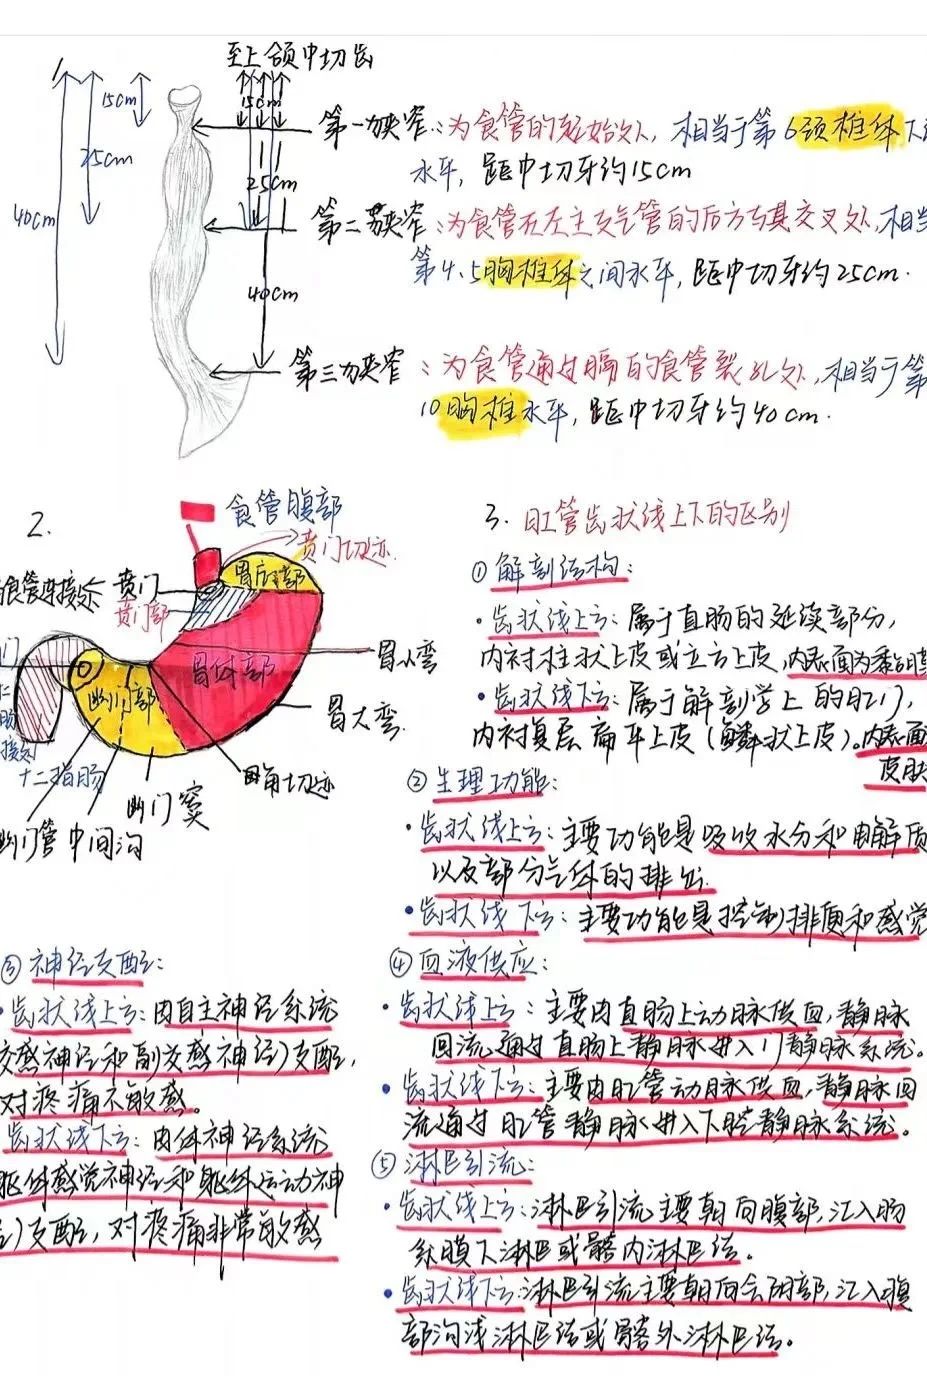 至上颌中切齿
15cm
25cm
40cm
15cm
25cm
40cm
第一狭窄：为食管的起始处，相当于第6颈椎体下
水平，距中切牙约15cm
第二狭窄：为食管在左主支气管的后方与其交叉处，相当
第4、5胸椎体之间水平，距中切牙约25cm.
第三狭窄：为食管通过膈的食管裂孔处，相当于第
10胸椎水平，距中切牙约40cm.
2.
食管腹部
贲门切迹.
食管连接处
贲门
贲门部
胃底部
胃体部
幽门部
胃小弯
胃大弯
角切迹
幽门窦
中间沟
幽门管
十二指肠
门
接处
3. 肛管齿状线上下的区别
① 解剖结构：
·齿状线上方：属于直肠的延续部分，
内衬柱状上皮或立方上皮，内表面为黏膜
·齿状线下方：属于解剖学上的肛门，
内衬复层扁平上皮（鳞状上皮）。内表面
皮肤
② 生理功能：
·齿状线上方：主要功能是吸收水分和电解质
以及部分气体的排出.
·齿状线下方：主要功能是控制排便和感觉
③ 神经支配：
·齿状线上方：由自主神经系统
交感神经和副交感神经）支配，
对疼痛不敏感。
齿状线下方：由体神经系统
躯体感觉神经和躯体运动神
经）支配，对疼痛非常敏感
④ 血液供应：
·齿状线上方：主要由直肠上动脉供血，静脉
回流通过直肠上静脉进入门静脉系统。
·齿状线下方：主要由肛管动脉供血，静脉回
流通过肛管静脉进入下腔静脉系统。
⑤ 淋巴引流：
·齿状线上方：淋巴引流主要朝向腹部，汇入肠
系膜下淋巴或髂内淋巴结。
·齿状线下方：淋巴引流主要朝向会阴部，汇入腹
部沟浅淋巴结或髂外淋巴结。